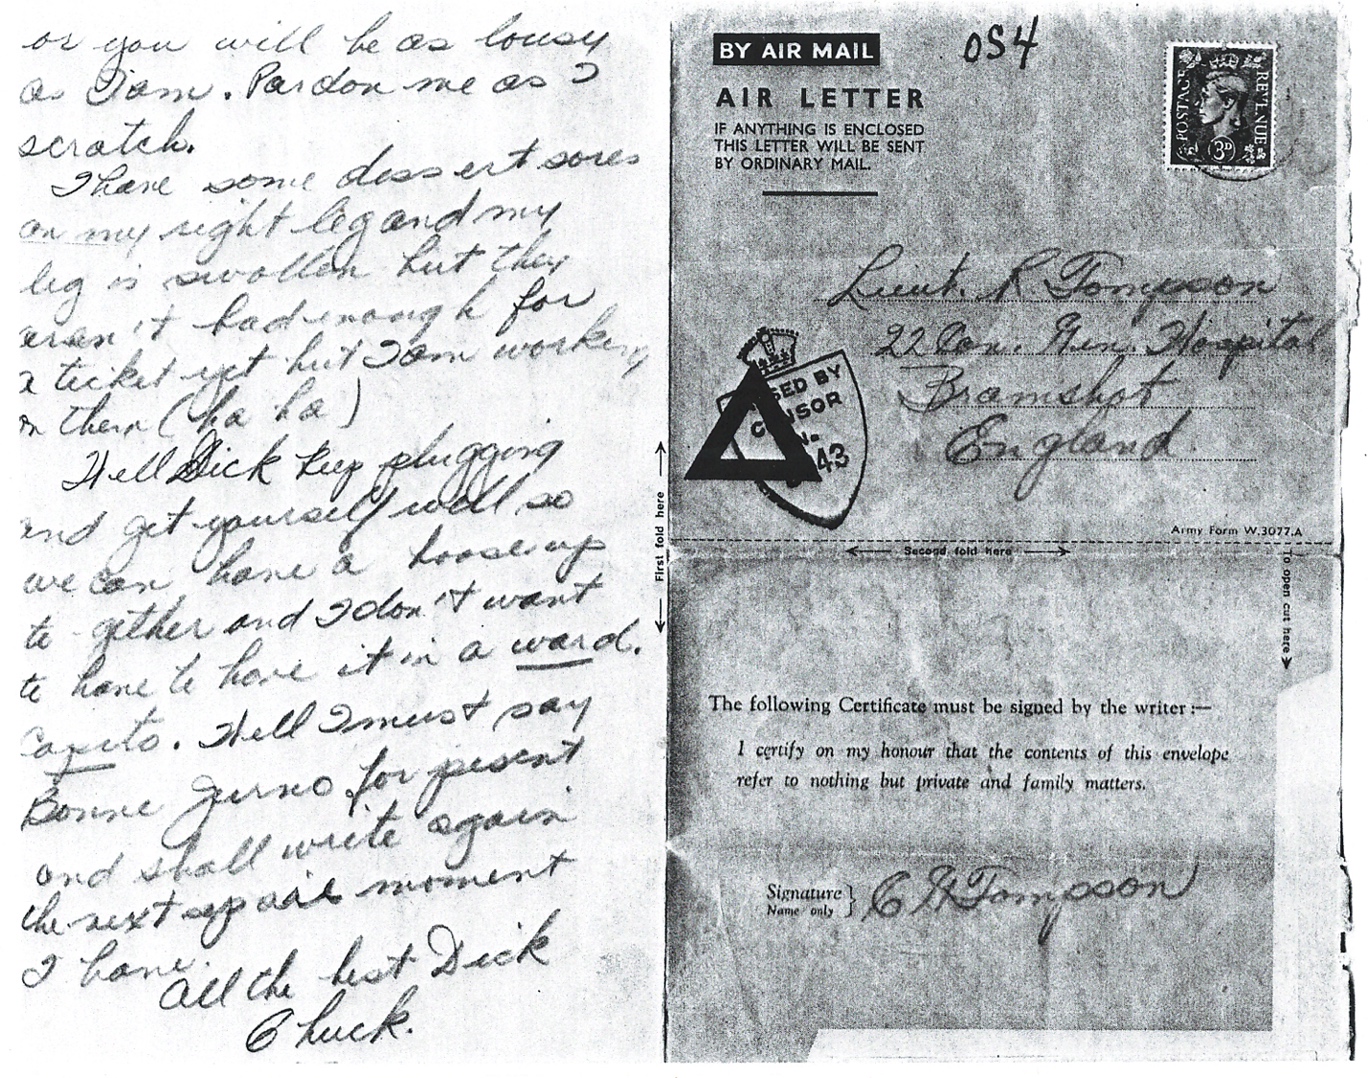 or you will be as lousy
as I am. Pardon me as I
scratch.
I have some dessert sores
on my right leg and my
leg is swollen but they
aren't bad enough for
a ticket yet but I am working
on them (ha ha)
Well Dick keep plugging
and get yourself well so
we can have a booseup
to gether and I don't want
to have to have it in a ward.
Capito. Well I must say
Bonne Jurno for pesent
and shall write again
the next spare moment
I have.
All the best Dick
Chuck.
BY AIR MAIL
OS4
AIR LETTER
IF ANYTHING IS ENCLOSED
THIS LETTER WILL BE SENT
BY ORDINARY MAIL.
POSTAGE REVENUE
3D
Lieut. R Tompson
22 Can. Gen. Hospital
Bramshot
England
SED BY
NSOR
43
Army Form W.3077.A
First fold here
Second fold here
To open cut here
The following Certificate must be signed by the writer:—
I certify on my honour that the contents of this envelope
refer to nothing but private and family matters.
Signature } C H Tompson
Name only